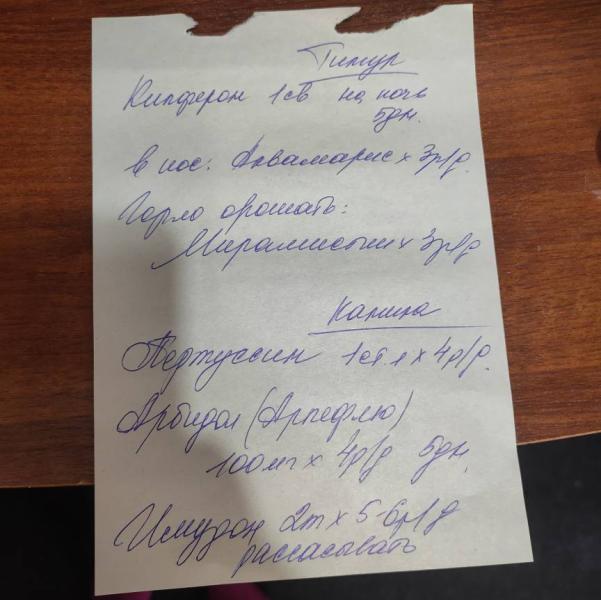 Тимур
Кипферон 1св на ночь
5дн.
в нос: Аквамарис х 3р/д.
Горло орошать:
Мирамистин х 3р/д
Камила
Пертуссин 1ст.л х 4р/д.
Арбидол (Арпефлю)
100мг х 4р/д 5дн.
Имудон 2т х 5-6р/д
рассасовать